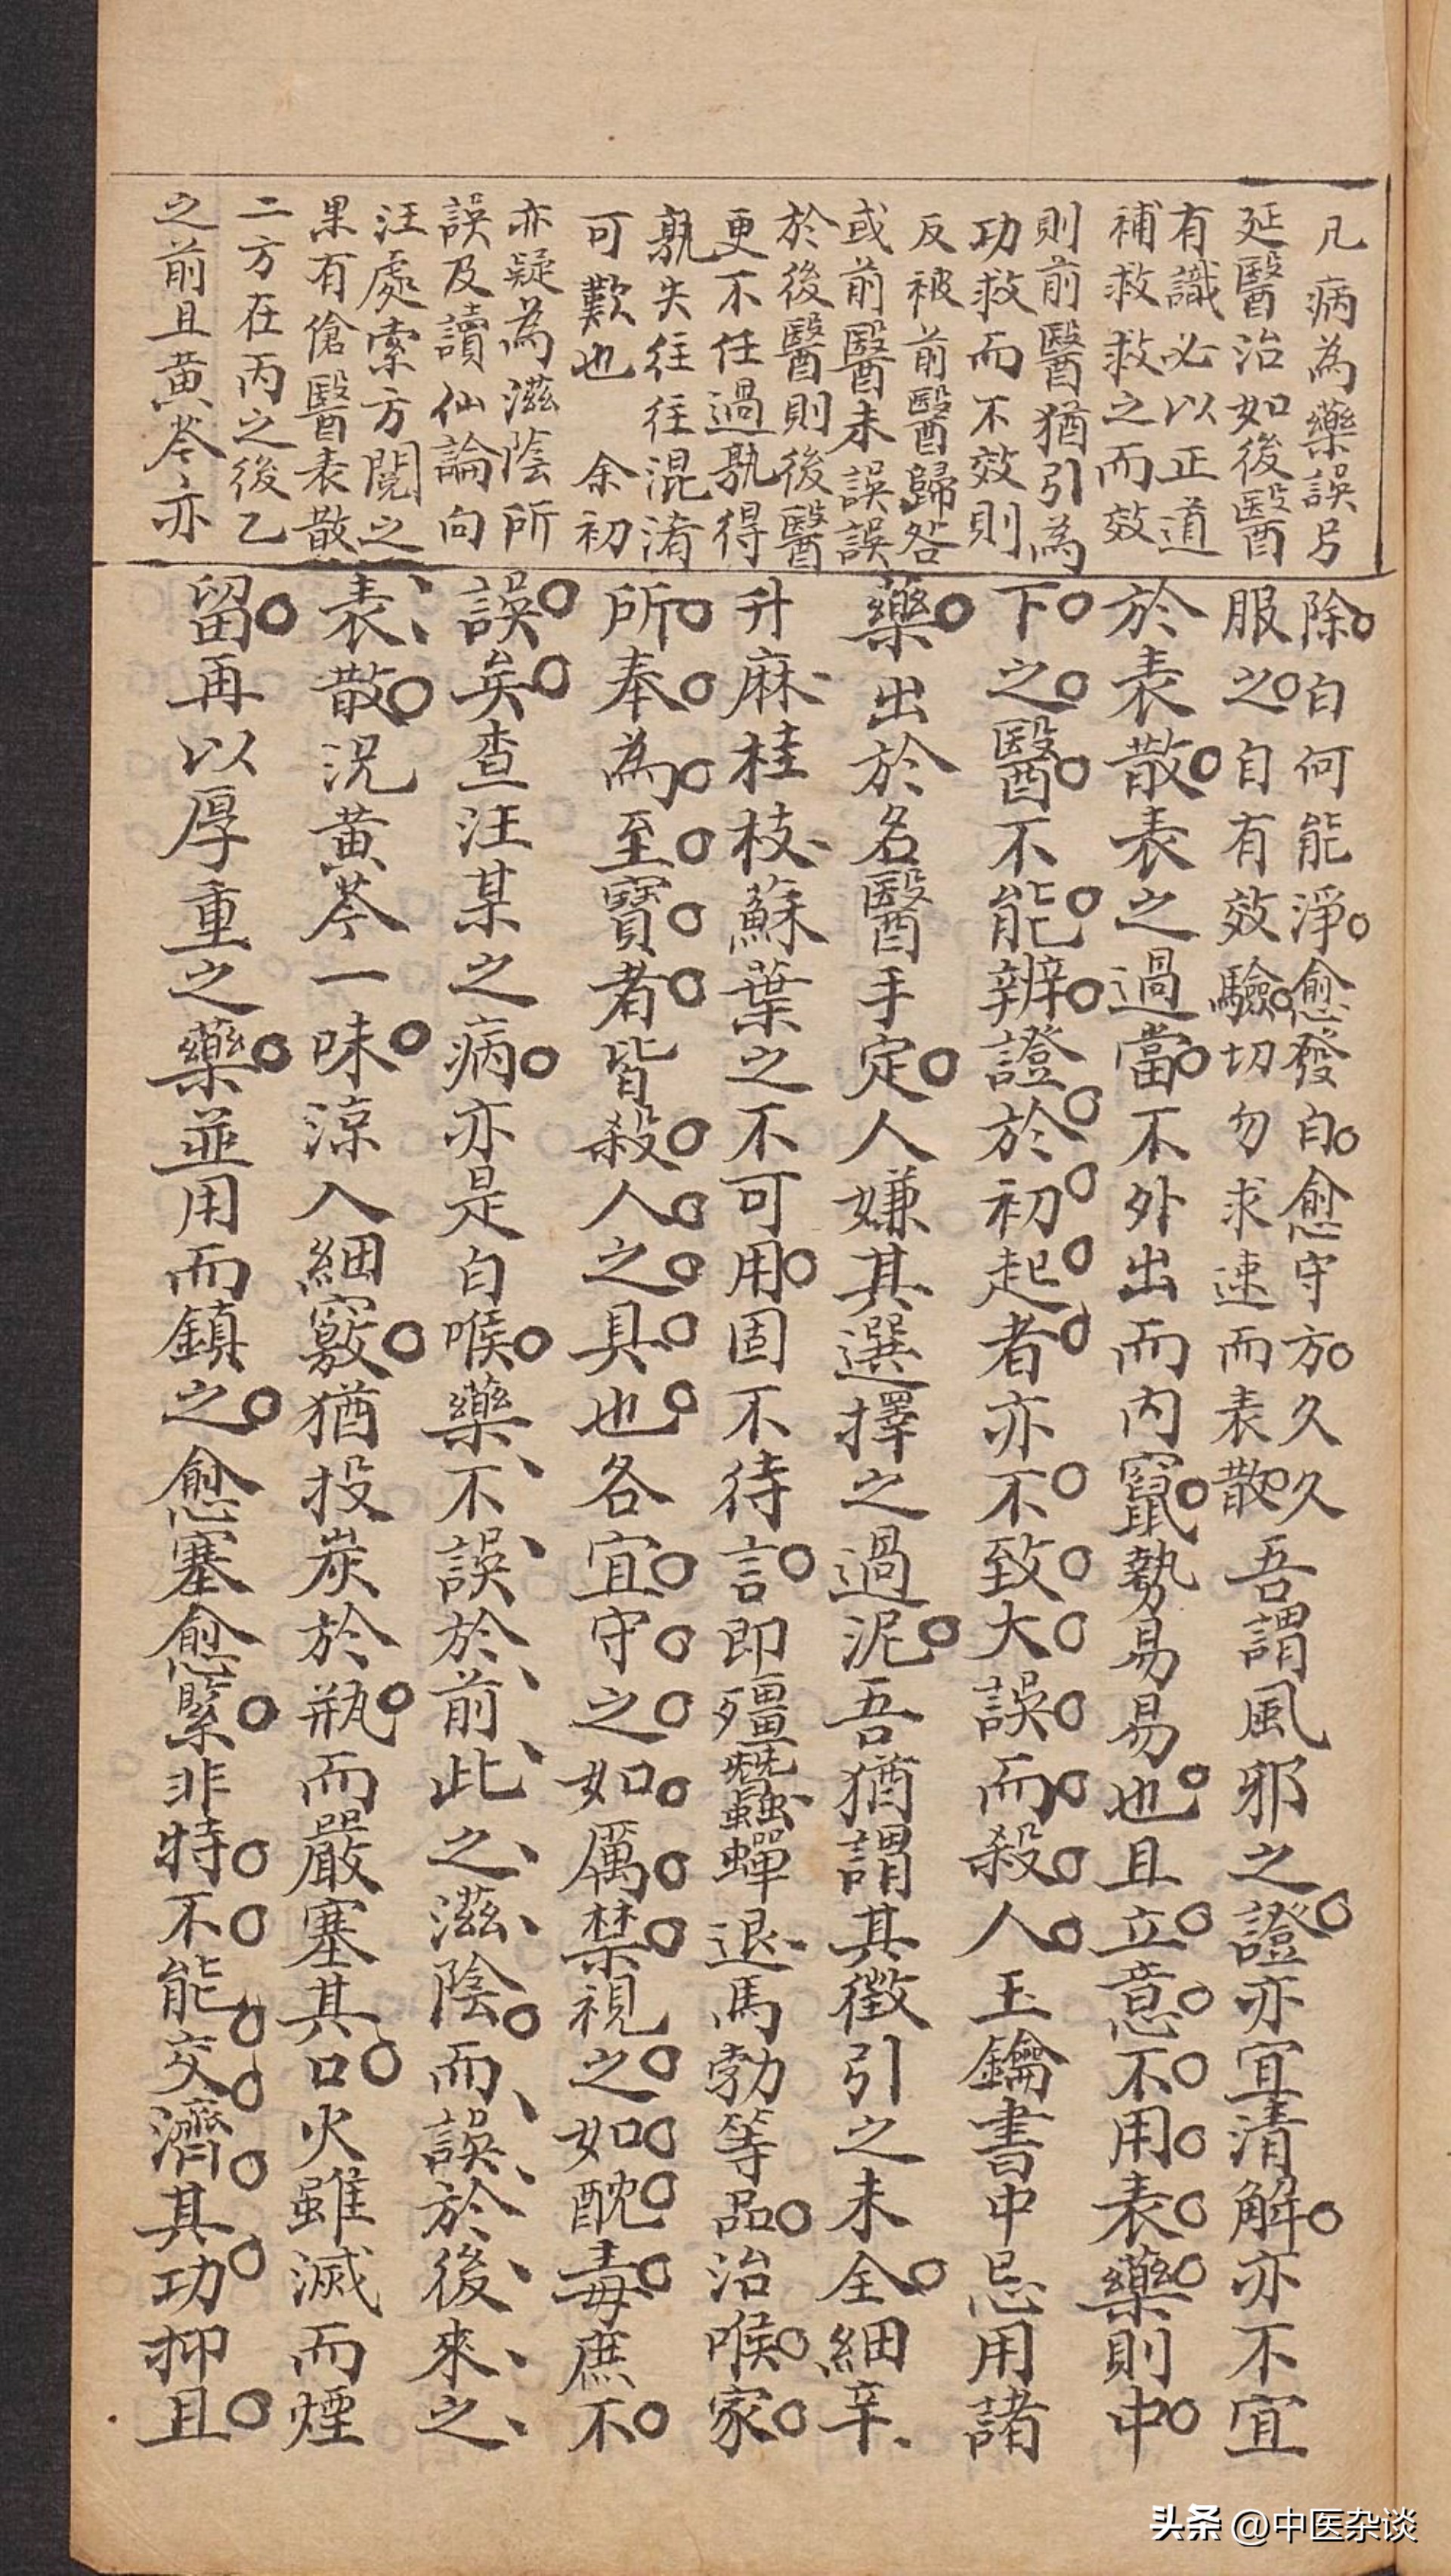 凡病為藥誤另
延醫治如後醫
有識必以正道
補救救之而效
則前醫猶引為
功救而不效則
反被前醫歸咎
或前醫未誤誤
於後醫則後醫
更不任過孰得
孰失往往混淆
可歎也 余初
亦疑為滋陰所
誤及讀仙論向
汪處索方閱之
果有傖醫表散
二方在丙之後乙
之前且黃芩亦
除白何能淨愈發白愈守方久久
服之自有效驗切勿求速而表散
吾謂風邪之證亦宜清解亦不宜
於表散表之過當不外出而內竄勢易易也且立意不用表藥則中
下之醫不能辨證於初起者亦不致大誤而殺人玉鑰書中忌用諸
藥出於名醫手定人嫌其選擇之過泥吾猶謂其徵引之未全細辛
升麻桂枝蘇葉之不可用固不待言即殭蠶蟬退馬勃等品治喉家
所奉為至寶者皆殺人之具也各宜守之如厲禁視之如酖毒庶不
誤矣查汪某之病亦是白喉藥不誤於前此之滋陰而誤於後來之
表散況黃芩一味涼入細竅猶投炭於瓶而嚴塞其口火雖滅而煙
留再以厚重之藥並用而鎮之愈塞愈緊非特不能交濟其功抑且
头条 @中医杂谈